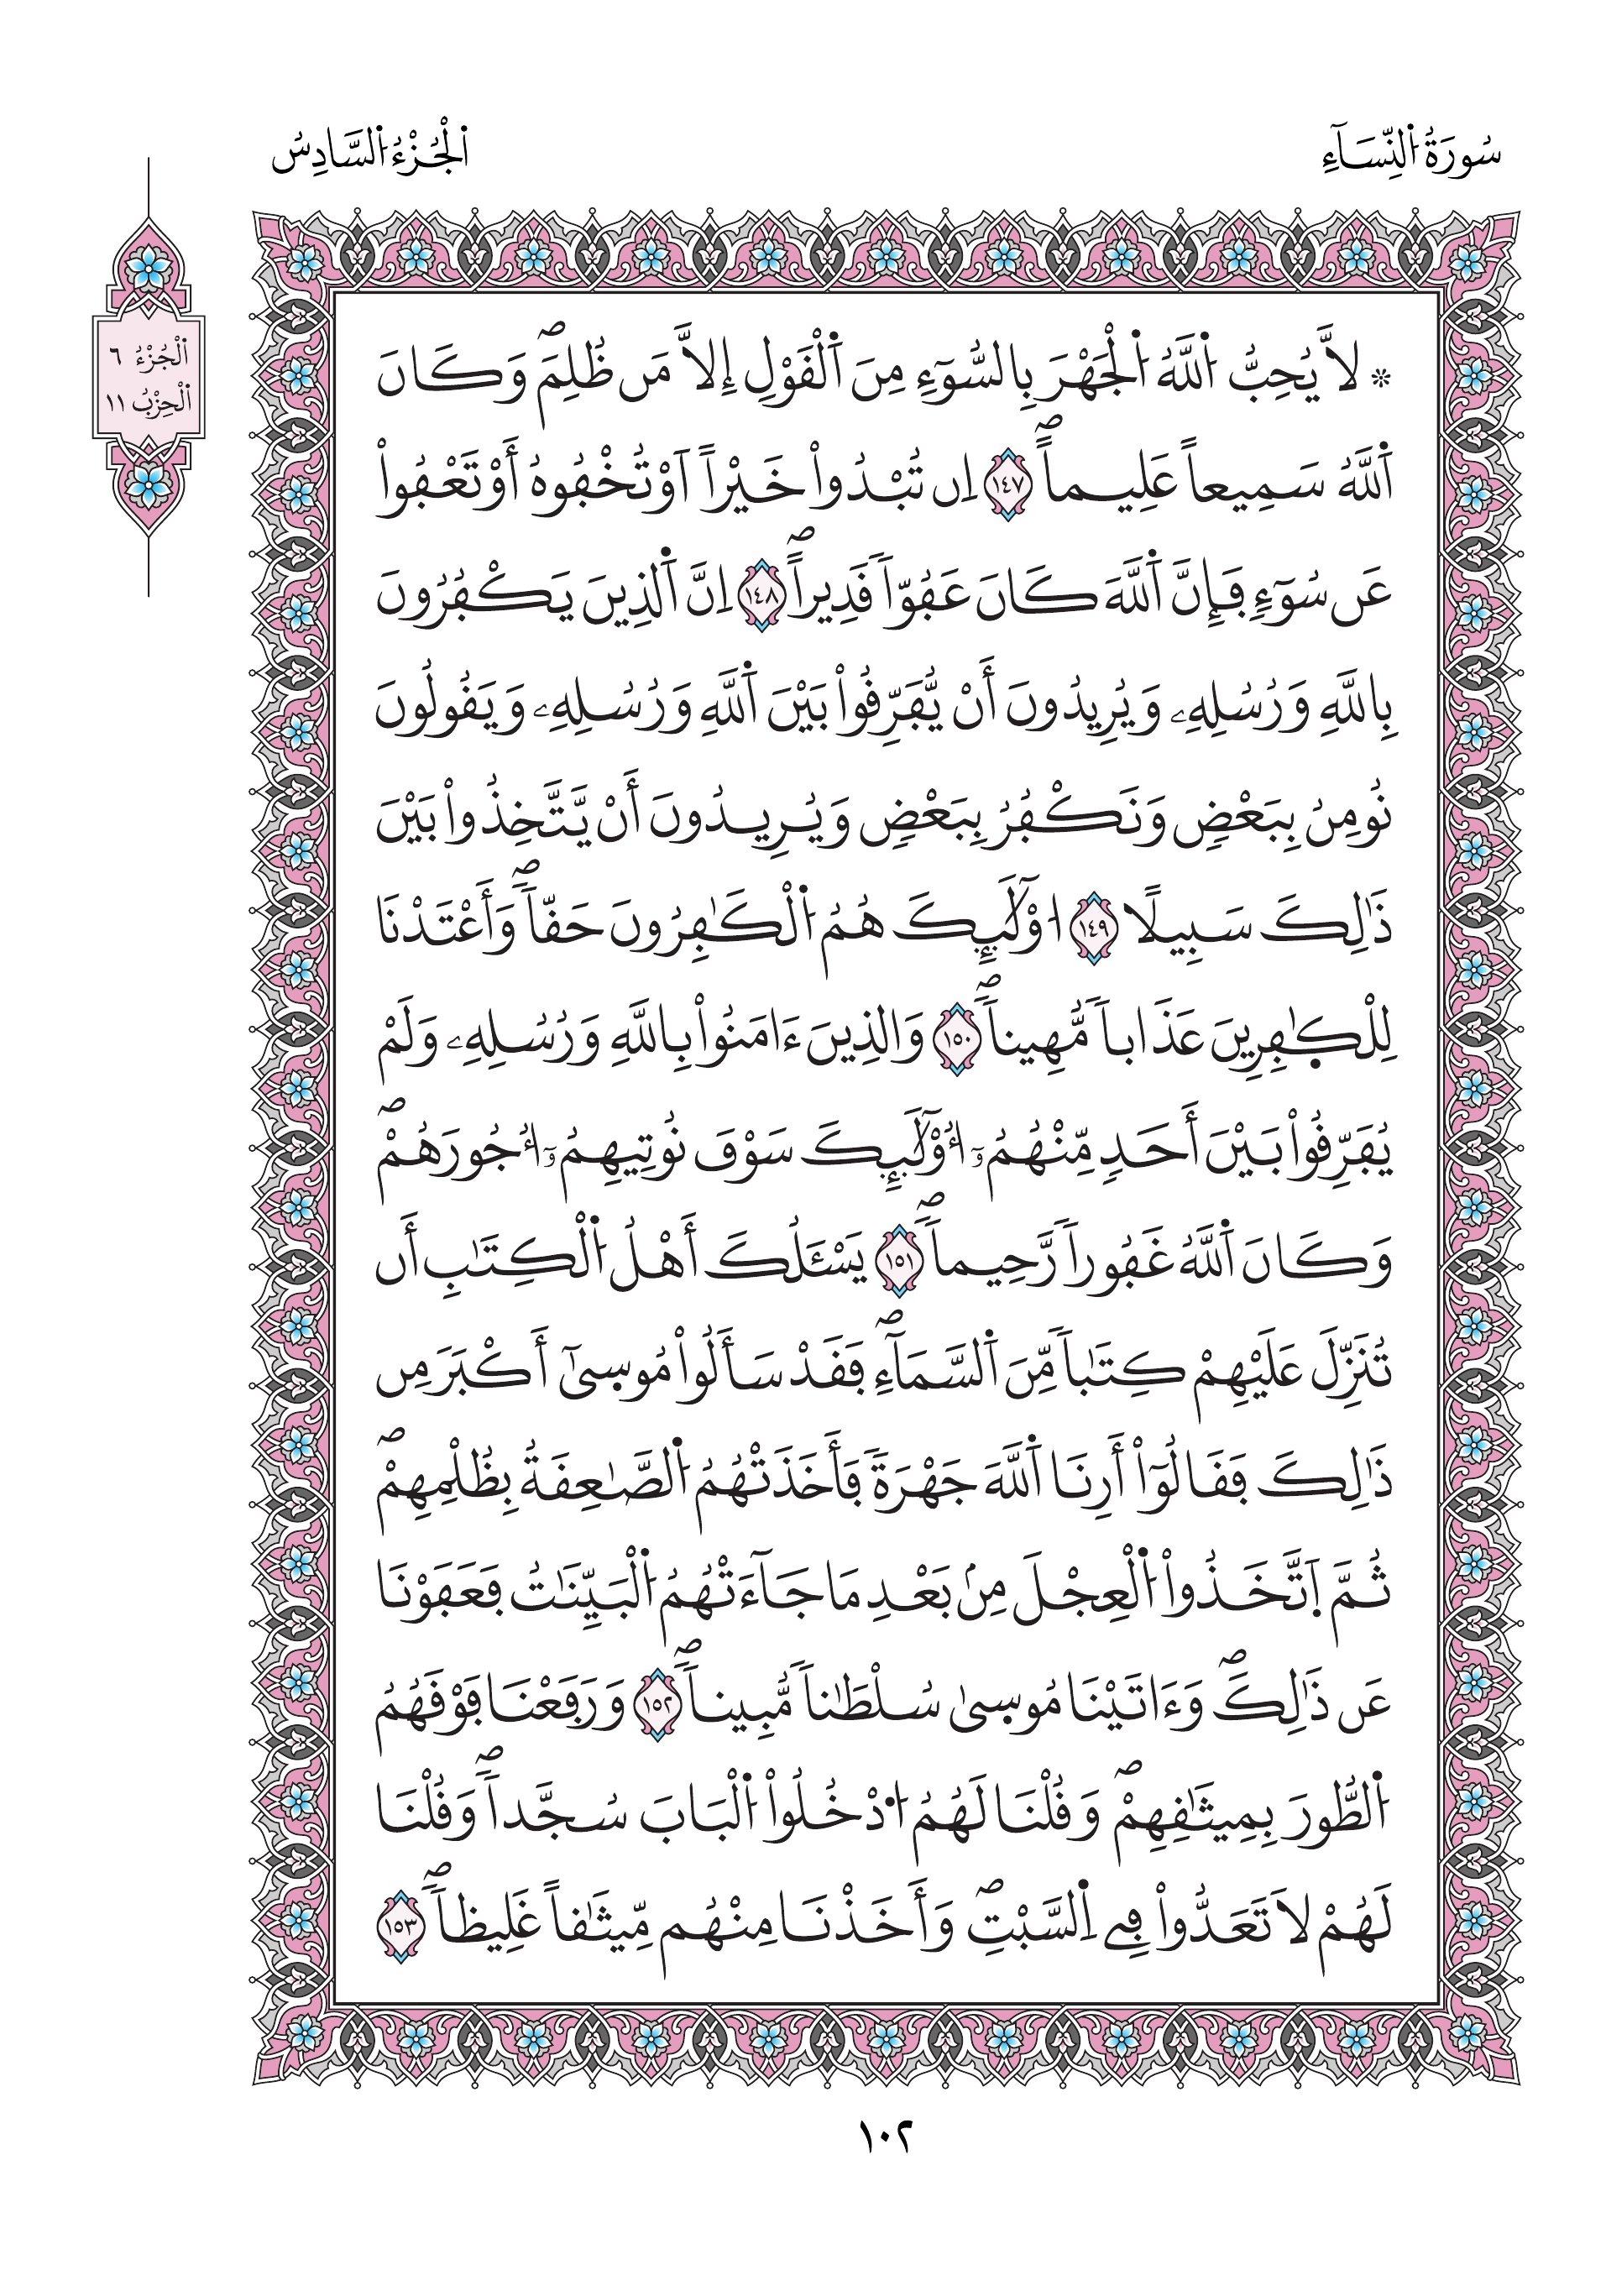 سُورَةُ اُ۬لنِّسَآءِ
اُ۬لْجُزْءُ اُ۬لسَّادِسُ
اَ۬لْجُزْءُ ٦
اَ۬لْحِزْبُ ١١
* لاَّ يُحِبُّ اُ۬للَّهُ اُ۬لْجَهْرَ بِالسُّوٓءِ مِنَ اَ۬لْقَوْلِ إِلاَّ مَن ظُلِمَۖ وَكَانَ
اَ۬للَّهُ سَمِيعاً عَلِيماًۖ ١٤٧ اِن تُبْدُواْ خَيْراً اَوْ تُخْفُوهُ أَوْ تَعْفُواْ
عَن سُوٓءٖ فَإِنَّ اَ۬للَّهَ كَانَ عَفُوّاٗ قَدِيراًۖ ١٤٨ اِنَّ اَ۬لذِينَ يَكْفُرُونَ
بِاللَّهِ وَرُسُلِهِۦ وَيُرِيدُونَ أَنْ يُّفَرِّقُواْ بَيْنَ اَ۬للَّهِ وَرُسُلِهِۦ وَيَقُولُونَ
نُومِنُ بِبَعْضٖ وَنَكْفُرُ بِبَعْضٖ وَيُرِيدُونَ أَنْ يَّتَّخِذُواْ بَيْنَ
ذَٰلِكَ سَبِيلًا ١٤٩ ا۟وْلَٰٓئِكَ هُمُ اُ۬لْكَٰفِرُونَ حَقّاٗۖ وَأَعْتَدْنَا
لِلْكٰ۪فِرِينَ عَذَاباٗ مُّهِيناٗۖ ١٥٠ وَالذِينَ ءَامَنُواْ بِاللَّهِ وَرُسُلِهِۦ وَلَمْ
يُفَرِّقُواْ بَيْنَ أَحَدٖ مِّنْهُمُۥٓ أُوْلَٰٓئِكَ سَوْفَ نُوتِيهِمُۥٓ أُجُورَهُمْۖ
وَكَانَ اَ۬للَّهُ غَفُوراٗ رَّحِيماٗۖ ١٥١ يَسْـَٔلُكَ أَهْلُ اُ۬لْكِتَٰبِ أَن
تُنَزِّلَ عَلَيْهِمْ كِتَٰباٗ مِّنَ اَ۬لسَّمَآءِۖ فَقَدْ سَأَلُواْ مُوس۪ىٰٓ أَكْبَرَ مِن
ذَٰلِكَ فَقَالُوٓاْ أَرِنَا اَ۬للَّهَ جَهْرَةٗ فَأَخَذَتْهُمُ اُ۬لصَّٰعِقَةُ بِظُلْمِهِمْۖ
ثُمَّ اَ۪تَّخَذُواْ اُ۬لْعِجْلَ مِنۢ بَعْدِ مَا جَآءَتْهُمُ اُ۬لْبَيِّنَٰتُ فَعَفَوْنَا
عَن ذَٰلِكَۖ وَءَاتَيْنَا مُوس۪ىٰ سُلْطَٰناٗ مُّبِيناٗۖ ١٥٢ وَرَفَعْنَا فَوْقَهُمُ
اُ۬لطُّورَ بِمِيثَٰقِهِمْۖ وَقُلْنَا لَهُمُ ا۟دْخُلُواْ اُ۬لْبَابَ سُجَّداٗۖ وَقُلْنَا
لَهُمْ لاَ تَعَدُّواْ فِے اِ۬لسَّبْتِۖ وَأَخَذْنَا مِنْهُم مِّيثَٰقاً غَلِيظاٗۖ ١٥٣
١٠٢